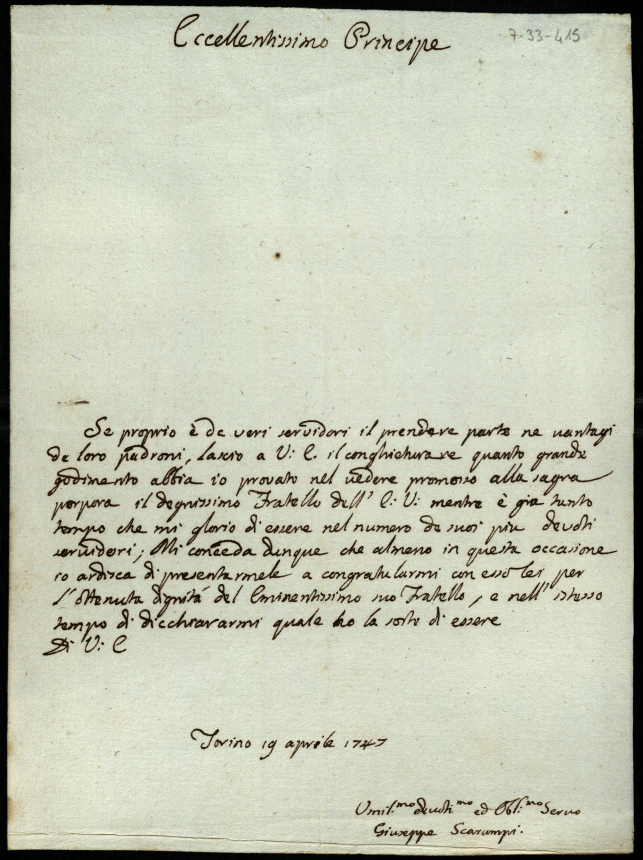 Eccellentissimo Principe
7-33-415
Se proprio è de veri servidori il prendere parte ne vantagi
de loro padroni, lascio a V: E. il conghieturare quanto grande
godimento abbia io provato nel vedere promosso alla sagra
porpora il degnissimo Fratello dell' E: V: mentre è gia tanto
tempo che mi glorio di essere nel numero de suoi piu devoti
servidori; Mi conceda dunque che almeno in questa occasione
io ardisca di presentarmele a congratularmi con esso lei per
l'ottenuta dignitá del Eminentissimo suo Fratello, e nell' istesso
tempo di dicchiararmi quale ho la sorte di essere
Di V: E
Torino 19 aprile 1747
Umil:mo devoti:mo ed Obl:mo Servo
Giuseppe Scarampi.